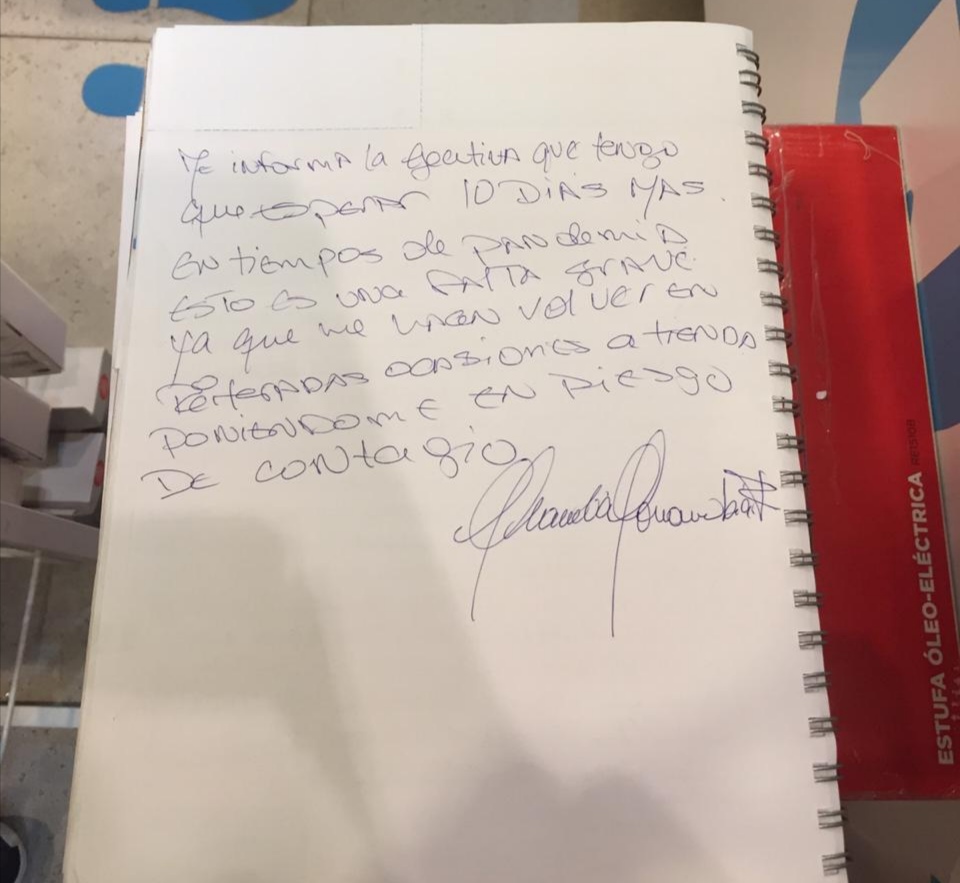 Me informa la Ejecutiva que tengo
que esperar 10 DIAS MAS.
EN tiempos de PANdemia
esto es una FALTA GRAVE
ya que me hacen volver en
reiteradas ocasiones a tienda
PONIENDOME EN RIESGO
DE contagio
ESTUFA ÓLEO-ELÉCTRICA